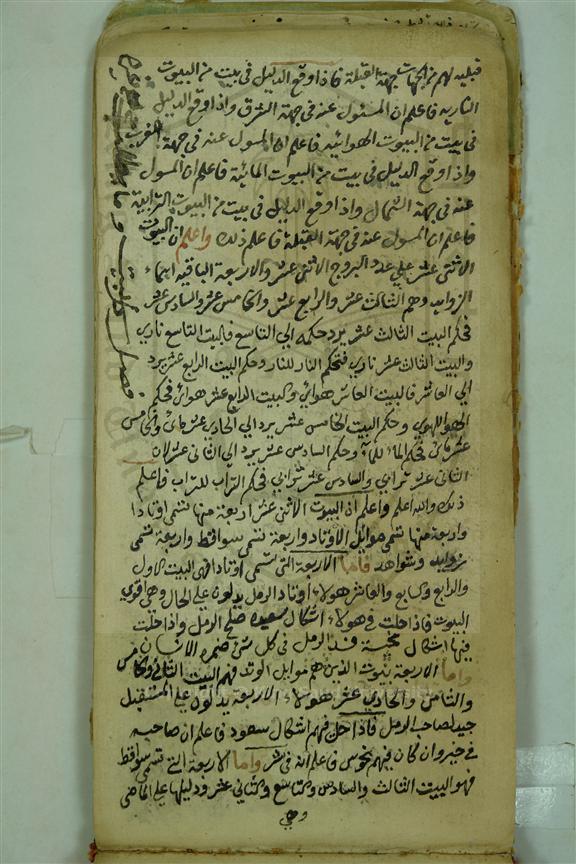 قبليه لهم من الجهات جهة القبلة فاذا وقع الدليل في بيت من البيوت
الناريه فاعلم ان المسئول عنه في جهة الشرق واذا وقع الدليل
في بيت من البيوت الهوائيه فاعلم ان المسول عنه في جهة الغرب
واذا وقع الدليل في بيت من البيوت المائية فاعلم ان المسول
عنه في جهة الشمال واذا وقع الدليل في بيت من البيوت الترابية
فاعلم ان المسول عنه في جهة القبلة فاعلم ذلك واعلم ان البيوت
الاثنى عشر علي عدد البروج الاثنى عشر والاربعة الباقيه اسماء
الزوايد وهم الثالث عشر والرابع عشر والخامس عشر والسادس عشر
فحكم البيت الثالث عشر يرد حكمه الي التاسع فالبيت التاسع ناري
والبيت الثالث عشر ناري فتحكم النار للنار وحكم البيت الرابع عشر يرد
الي العاشر فالبيت العاشر هوائي وكبيت الرابع عشر هوائي فحكم
الهوا للهوي وحكم البيت الخامس عشر يرد الي الحادي عشر مائي والخامس
عشر مائي فحكم الماء للماء وحكم السادس عشر يرد الي الثاني عشر لان
الثاني عشر ترابي والسادس عشر ترابي فحكم التراب للتراب فاعلم
ذلك والله اعلم واعلم ان البيوت الاثنى عشر اربعة منها تسمى اوتادا
واربعة منها تسمى موايل الاوتاد واربعة تسمى سواقط واربعة تسمى
زوايد وشواهد فاما الاربعة التي تسمى اوتاد فهي البيت الاول
والرابع وكسابع والعاشر هولاء اوتاد الرمل يدلون علي الحال وهي اقوي
البيوت فاذا حلت في هولاء اشكال سعيده صلح الرمل واذا حلت
فيها اشكال نحسة فسد الرمل في كل شئ ضمره الانسان
واما الاربعة بيوت الذين هم موايل الوتد فهم البيت الثاني وكخامس
والثامن والحادي عشر هولاء الاربعة يدلون علي المستقبل
جيد لصاحب الرمل فاذا حل فيهم اشكال سعود فاعلم ان صاحبه
في خير وان كان فيهم نحوس فاعلم انه في شر واما الاربعة التي تسمى سواقط
فهو البيت الثالث والسادس وكتاسع وكثاني عشر ودليلها علي الماضي
وهي